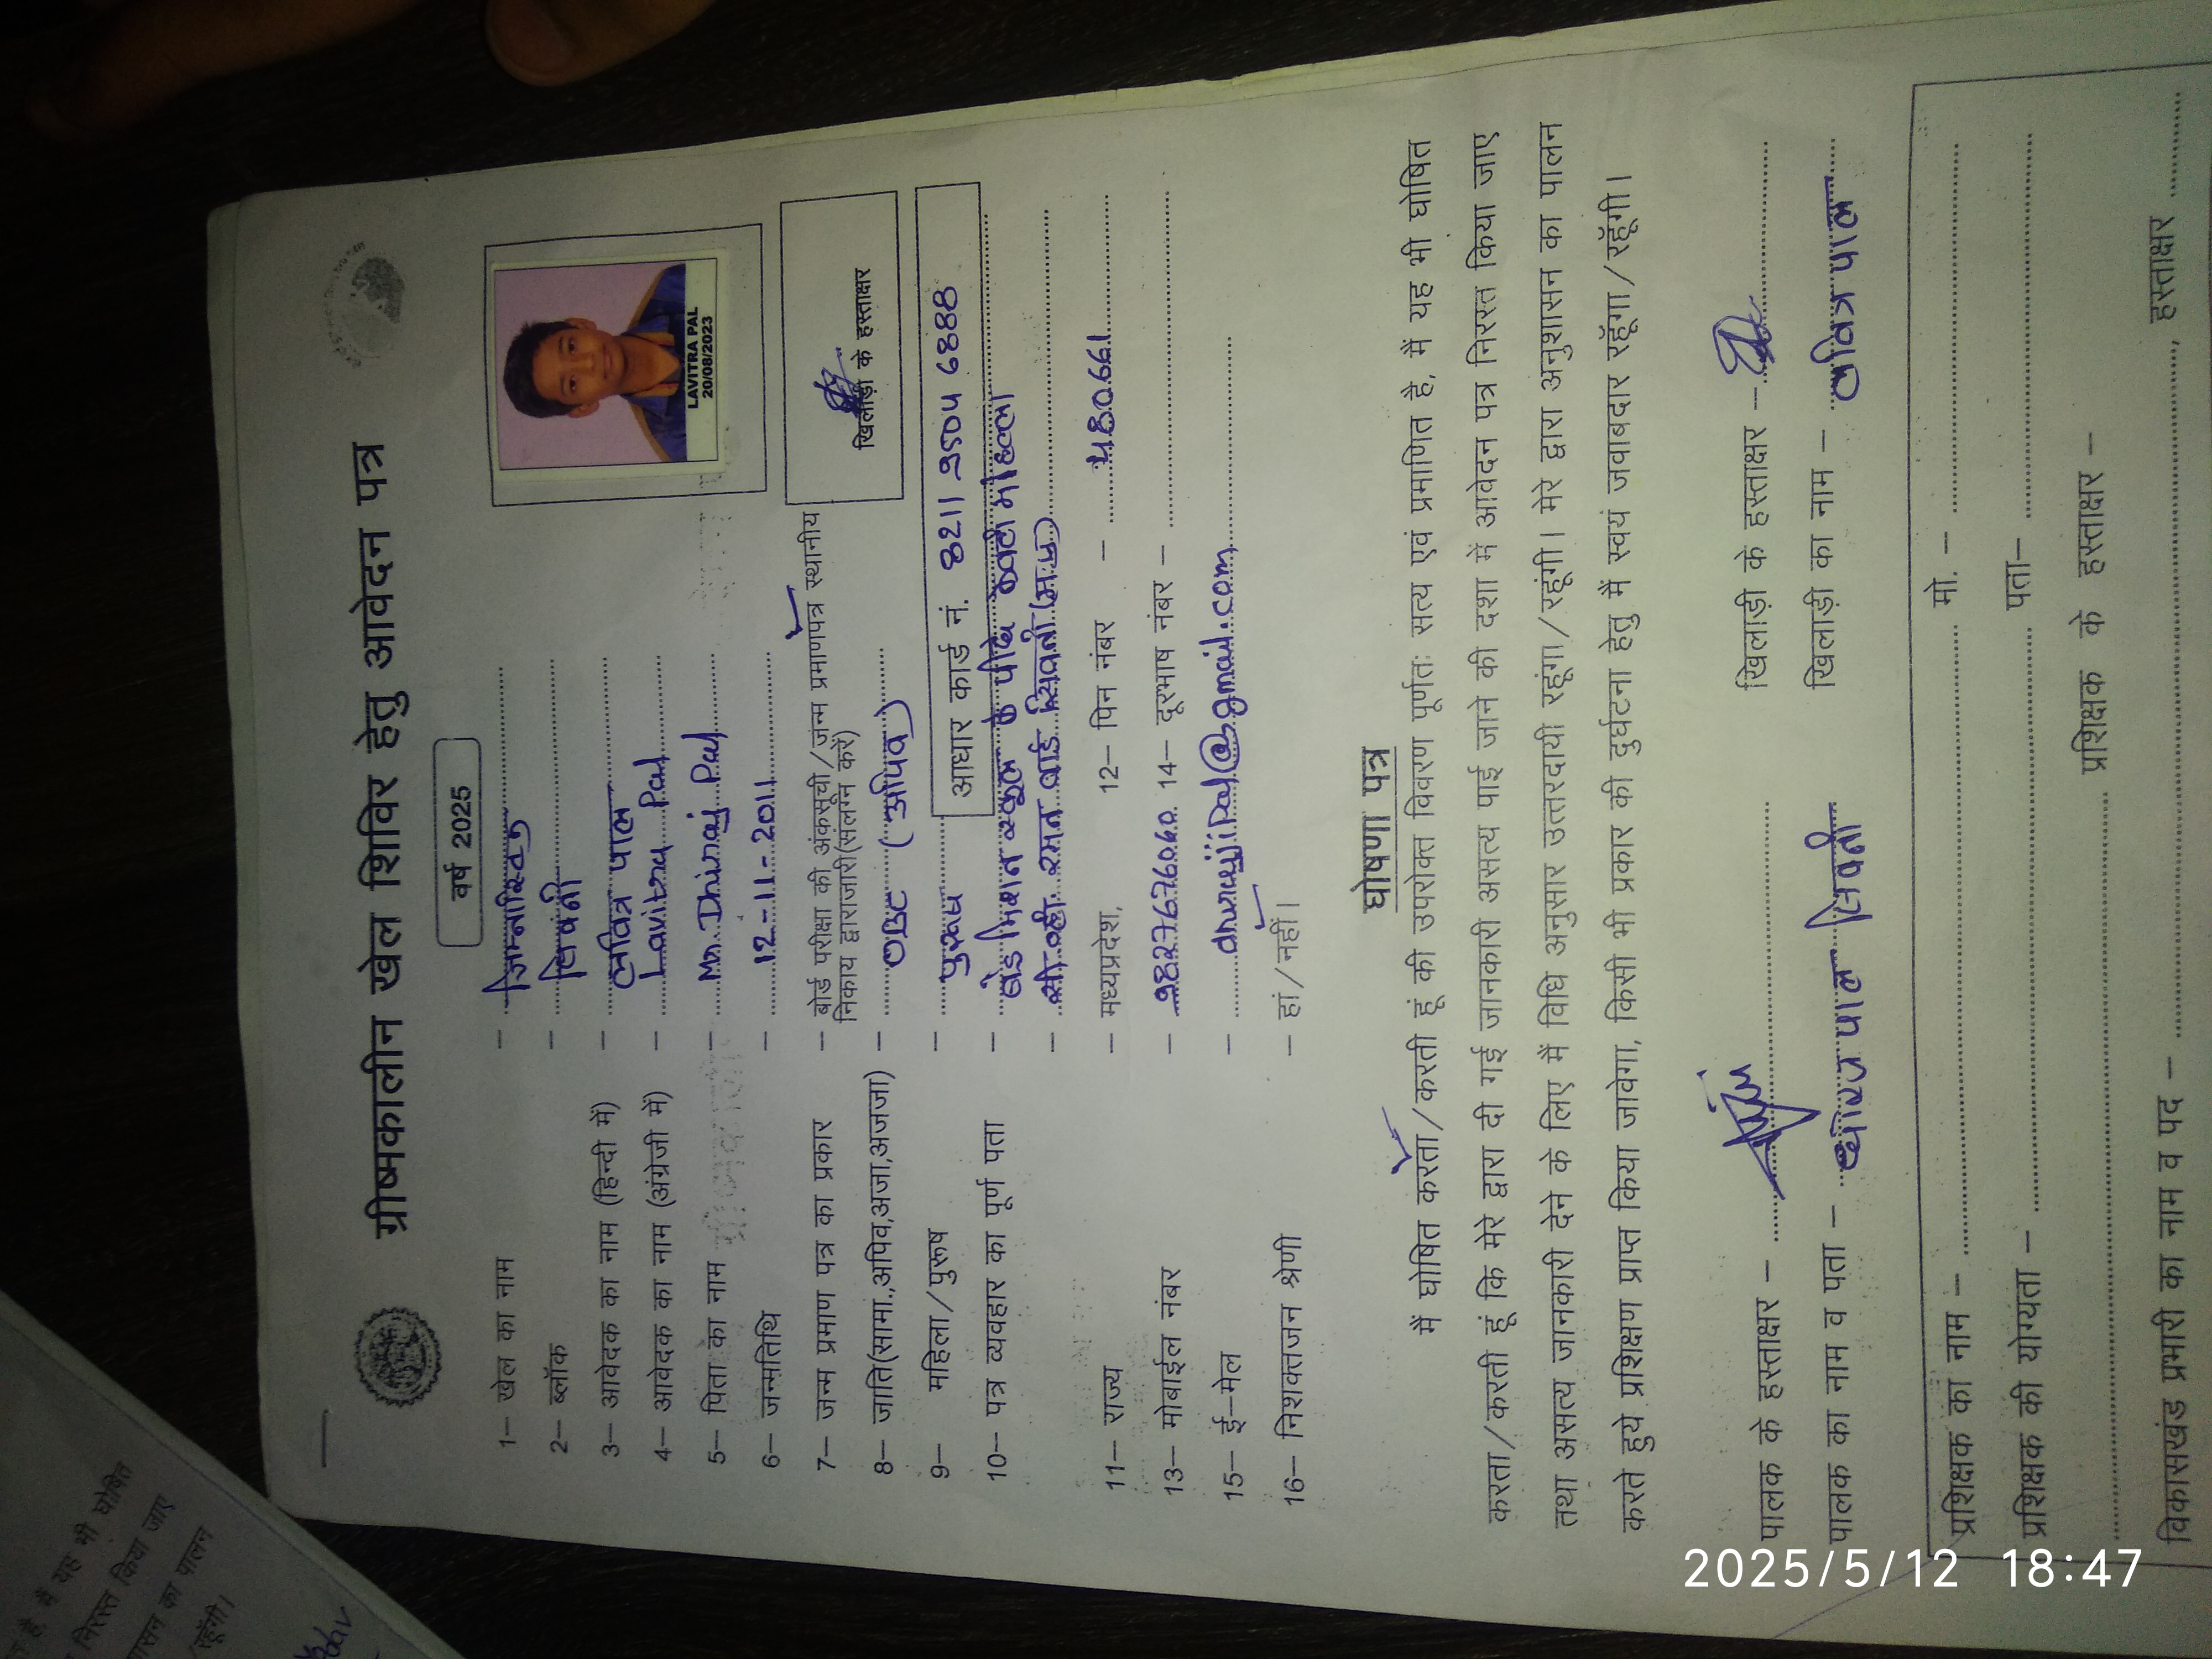 ग्रीष्मकालीन खेल शिविर हेतु आवेदन पत्र
वर्ष 2025
LAVITRA PAL
20/08/2023
खिलाड़ी के हस्ताक्षर
1– खेल का नाम – जिम्नास्टिक
2– ब्लॉक – सिवनी
3– आवेदक का नाम (हिन्दी में) – लवित्र पाल
4– आवेदक का नाम (अंग्रेजी में) – Lavitra Pal
5– पिता का नाम – Mr. Dhiraj Pal
6– जन्मतिथि – 12-11-2011
7– जन्म प्रमाण पत्र का प्रकार – बोर्ड परीक्षा की अंकसूची/जन्म प्रमाणपत्र स्थानीय
निकाय द्वाराजारी(संलग्न करें)
8– जाति(सामा.,अपिव,अजा,अजजा) – OBC (अपिव)
9– महिला/पुरूष – पुरूष
आधार कार्ड नं. 8211 9504 6888
10– पत्र व्यवहार का पूर्ण पता – मिशन स्कूल के पीछे मोहल्ला
सी.व्ही. रमन वार्ड सिवनी (म.प्र)
11– राज्य – मध्यप्रदेश, 12– पिन नंबर – 480661
13– मोबाईल नंबर – 9827676060 14– दूरभाष नंबर –
15– ई–मेल –
16– निशक्तजन श्रेणी – हां/नहीं।
घोषणा पत्र
मैं घोषित करता/करती हूं की उपरोक्त विवरण पूर्णतः सत्य एवं प्रमाणित है, मैं यह भी घोषित
करता/करती हूं कि मेरे द्वारा दी गई जानकारी असत्य पाई जाने की दशा में आवेदन पत्र निरस्त किया जाए
तथा असत्य जानकारी देने के लिए मैं विधि अनुसार उत्तरदायी रहूंगा/रहूंगी। मेरे द्वारा अनुशासन का पालन
करते हुये प्रशिक्षण प्राप्त किया जावेगा, किसी भी प्रकार की दुर्घटना हेतु मैं स्वयं जवाबदार रहूँगा/रहूँगी।
पालक के हस्ताक्षर – खिलाड़ी के हस्ताक्षर –
पालक का नाम व पता – धीरज पाल सिवनी खिलाड़ी का नाम – लवित्र पाल
प्रशिक्षक का नाम – मो. –
प्रशिक्षक की योग्यता – पता–
प्रशिक्षक के हस्ताक्षर –
विकासखंड प्रभारी का नाम व पद – , हस्ताक्षर
यह भी घोषित
निरस्त किया जाए
का पालन
रहूँगी।
2025/5/12 18:47